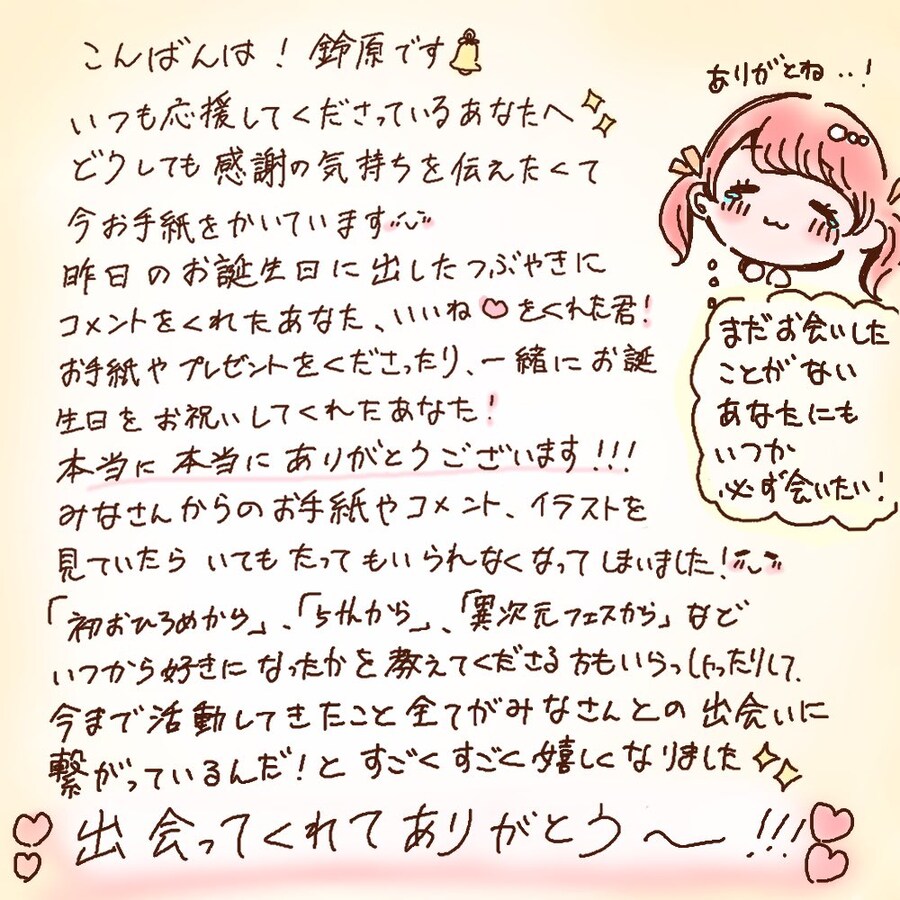 こんばんは！鈴原です
いつも応援してくださっているあなたへ
どうしても感謝の気持ちを伝えたくて
今お手紙をかいています
昨日のお誕生日に出したつぶやきに
コメントをくれたあなた、いいね♡をくれた君！
お手紙やプレゼントをくださったり、一緒にお誕
生日をお祝いしてくれたあなた！
本当に本当にありがとうございます！！！
みなさんからのお手紙やコメント、イラストを
見ていたらいてもたってもいられなくなってしまいました！
「初おひろめから」、「5thから」、「異次元フェスから」など
いつから好きになったかを教えてくださる方もいらっしゃったりして、
今まで活動してきたこと全てがみなさんとの出会いに
繋がっているんだ！とすごくすごく嬉しくなりました
出会ってくれてありがとう〜！！！
ありがとね..！
まだお会いした
ことがない
あなたにも
いつか
必ず会いたい！